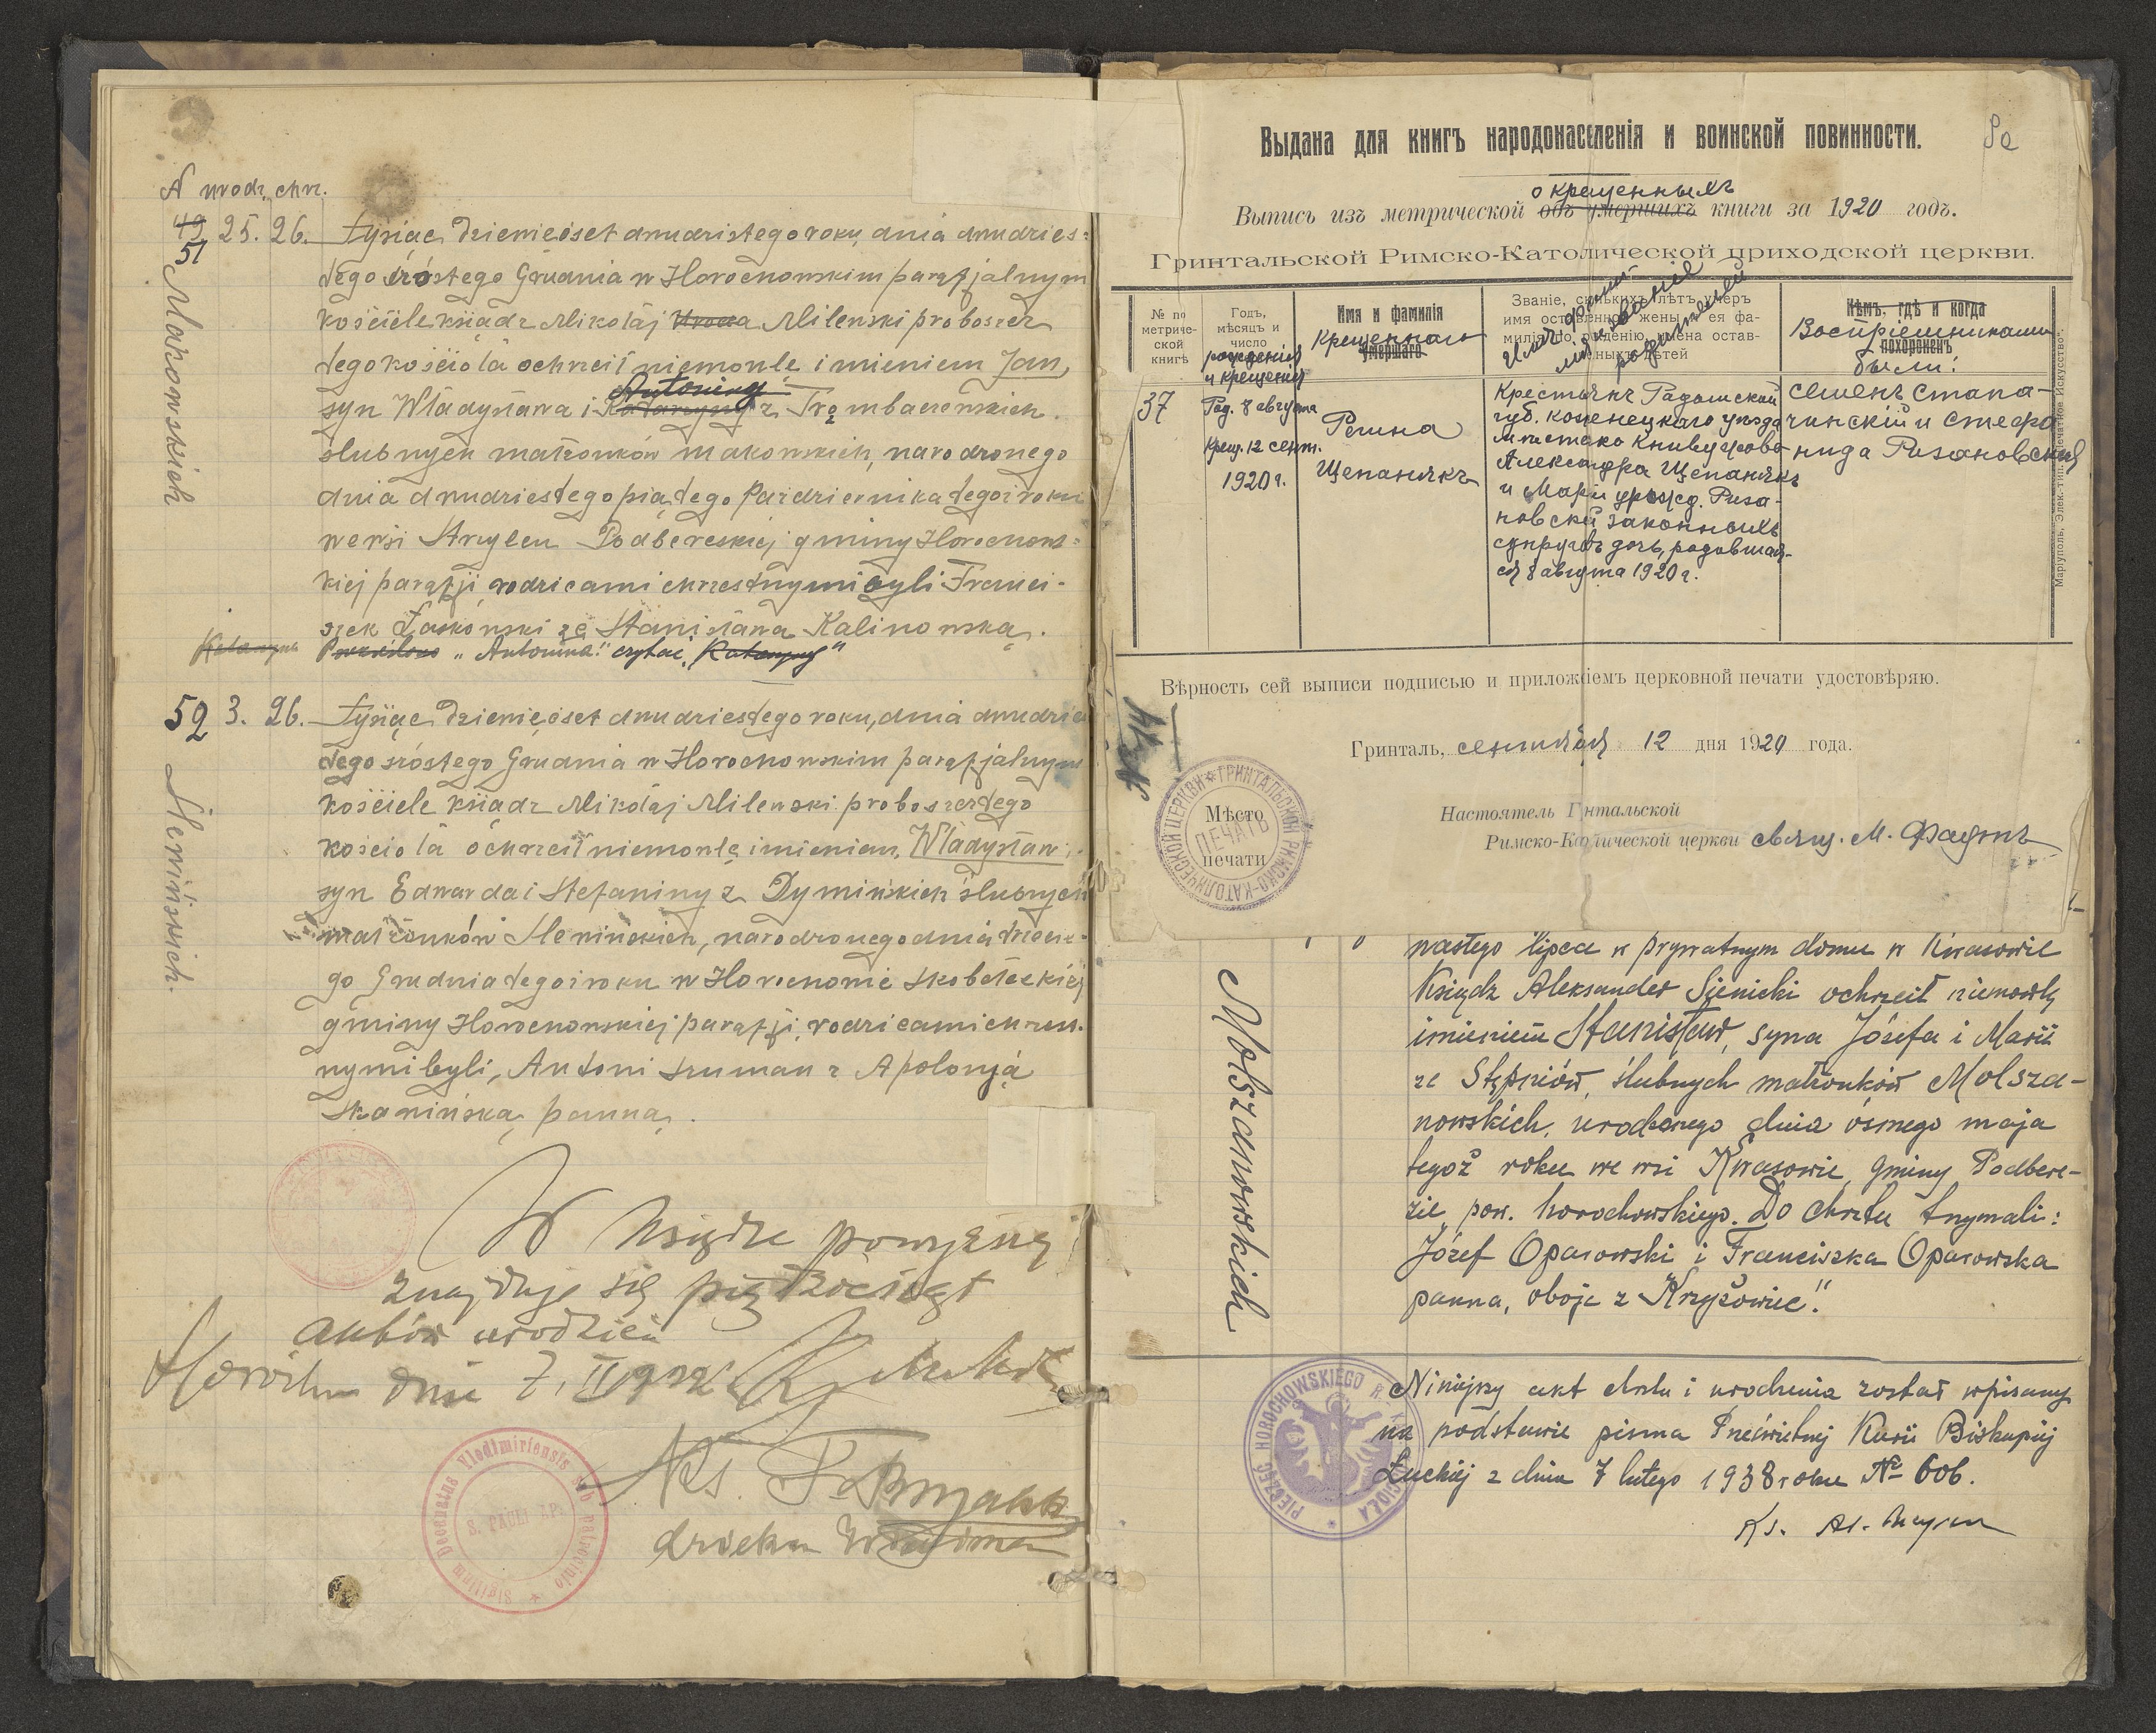 N urodz. chrz.
49 25. 26. Tysiąc dziewięćset dwudzistego roku, dnia dwudzies=
51
tego szóstego Grudnia w Horochowskim parafjalnym
kościele ksiądz Mikołaj Milewski proboszcz
tego kościoła ochrzcił niemowle imieniem Jan,
Antoniny
syn Władysława i Katarzyny z Trombaczewskich.
ślubnych małżonków Makowskich, narodzonego
dnia dwudziestego piątego Października tegoż roku
we wsi Strzylcu Podbereskiej gminy Horochows=
kiej parafji, rodzicami chrzestnymi byli Franci-
szek Laskowski ze Stanisława Kalinowską.
Katarzyna "Antonina" czytać "Katarzyny"
Makowskich
52 3. 26. Tysiąc dziewięćset dwudziestego roku, dnia dwudzies
tego szóstego Grudnia w Horochowskim parafjalnym
kościele ksiądz Mikołaj Milewski proboszcz tego
kościoła ochrzcił niemowlę imieniem Władysław,
syn Edwarda i Stefaniny z Dymińskich ślubnych
małżonków Slewińskich, narodzonego dnia trzecie-
go Grudnia tegoż roku w Horochowie Skobełeckiej
gminy Horochowskiej parafji, rodzicami chrzes.
nymi byli, Antoni Szuman z Apolonją
Skamińską panną.
W księdze powyższej
znajduje się pięćdziesiąt
aktów urodzeń
dnia 7. II 1922
Ks.
Sigillum Decanatus Vlodimiriensis sub patrocinio
S. PAULI AP.
Выдана для книгъ народонаселенія и воинской повинности.
о крещенныхъ
Выпись изъ метрической объ умершихъ книги за 1920 годъ.
Гринтальской Римско-Католической приходской церкви.
№ по метриче-ской книгѣ
Годъ, мѣсяцъ и число рожденія и крещенія
Имя и фамилія Крещеннаго умершаго
Званіе, сколькихъ лѣтъ умеръ
Кѣмъ, гдѣ и когда похороненъ
Воспріемниками были:
37
Род. 8 августа
Крещ. 12 сент.
1920 г.
Регина
Щепанякъ
Крестьянъ Радомской
губ. Конецкаго уѣзда
Александра Щепанякъ
и Маріи урожд. Риза-
новской законныхъ
супруговъ дочь, родившая-
ся 8 августа 1920 г.
Семенъ Стапа-
чинскій и Стефа
нида Ризановская
Маріуполь. Элек.-тип. „Печатное Искусство“.
Вѣрность сей выписи подписью и приложеніемъ церковной печати удостовѣряю.
Гринталь, сентября 12 дня 1920 года.
Мѣсто
печати
ПЕЧАТЬ ГРИНТАЛЬСКОЙ РИМСКО-КАТОЛИЧЕСКОЙ ЦЕРКВИ
Настоятель Гринтальской
Римско-Католической церкви свящ. М.
nastego lipca w prywatnym domu w Kwasowie
Ksiądz Aleksander Sienicki ochrzcił niemowlę
imieniem Stanisław, syna Józefa i Marii
ze Stępniów, ślubnych małżonków Molsza-
nowskich, urodzonego dnia ósmego maja
tegoż roku we wsi Kwasowie, gminy Podbere-
zie, pow. horochowskiego. Do chrztu trzymali:
Józef Oparowski i Franciszka Oparowska
panna, oboje z Krzyżowic."
Molszanowskich
Niniejszy akt chrztu i urodzenia został wpisany
na podstawie pisma Prześwietnej Kurii Biskupiej
Łuckiej z dnia 7 lutego 1938 roku № 606.
Ks.